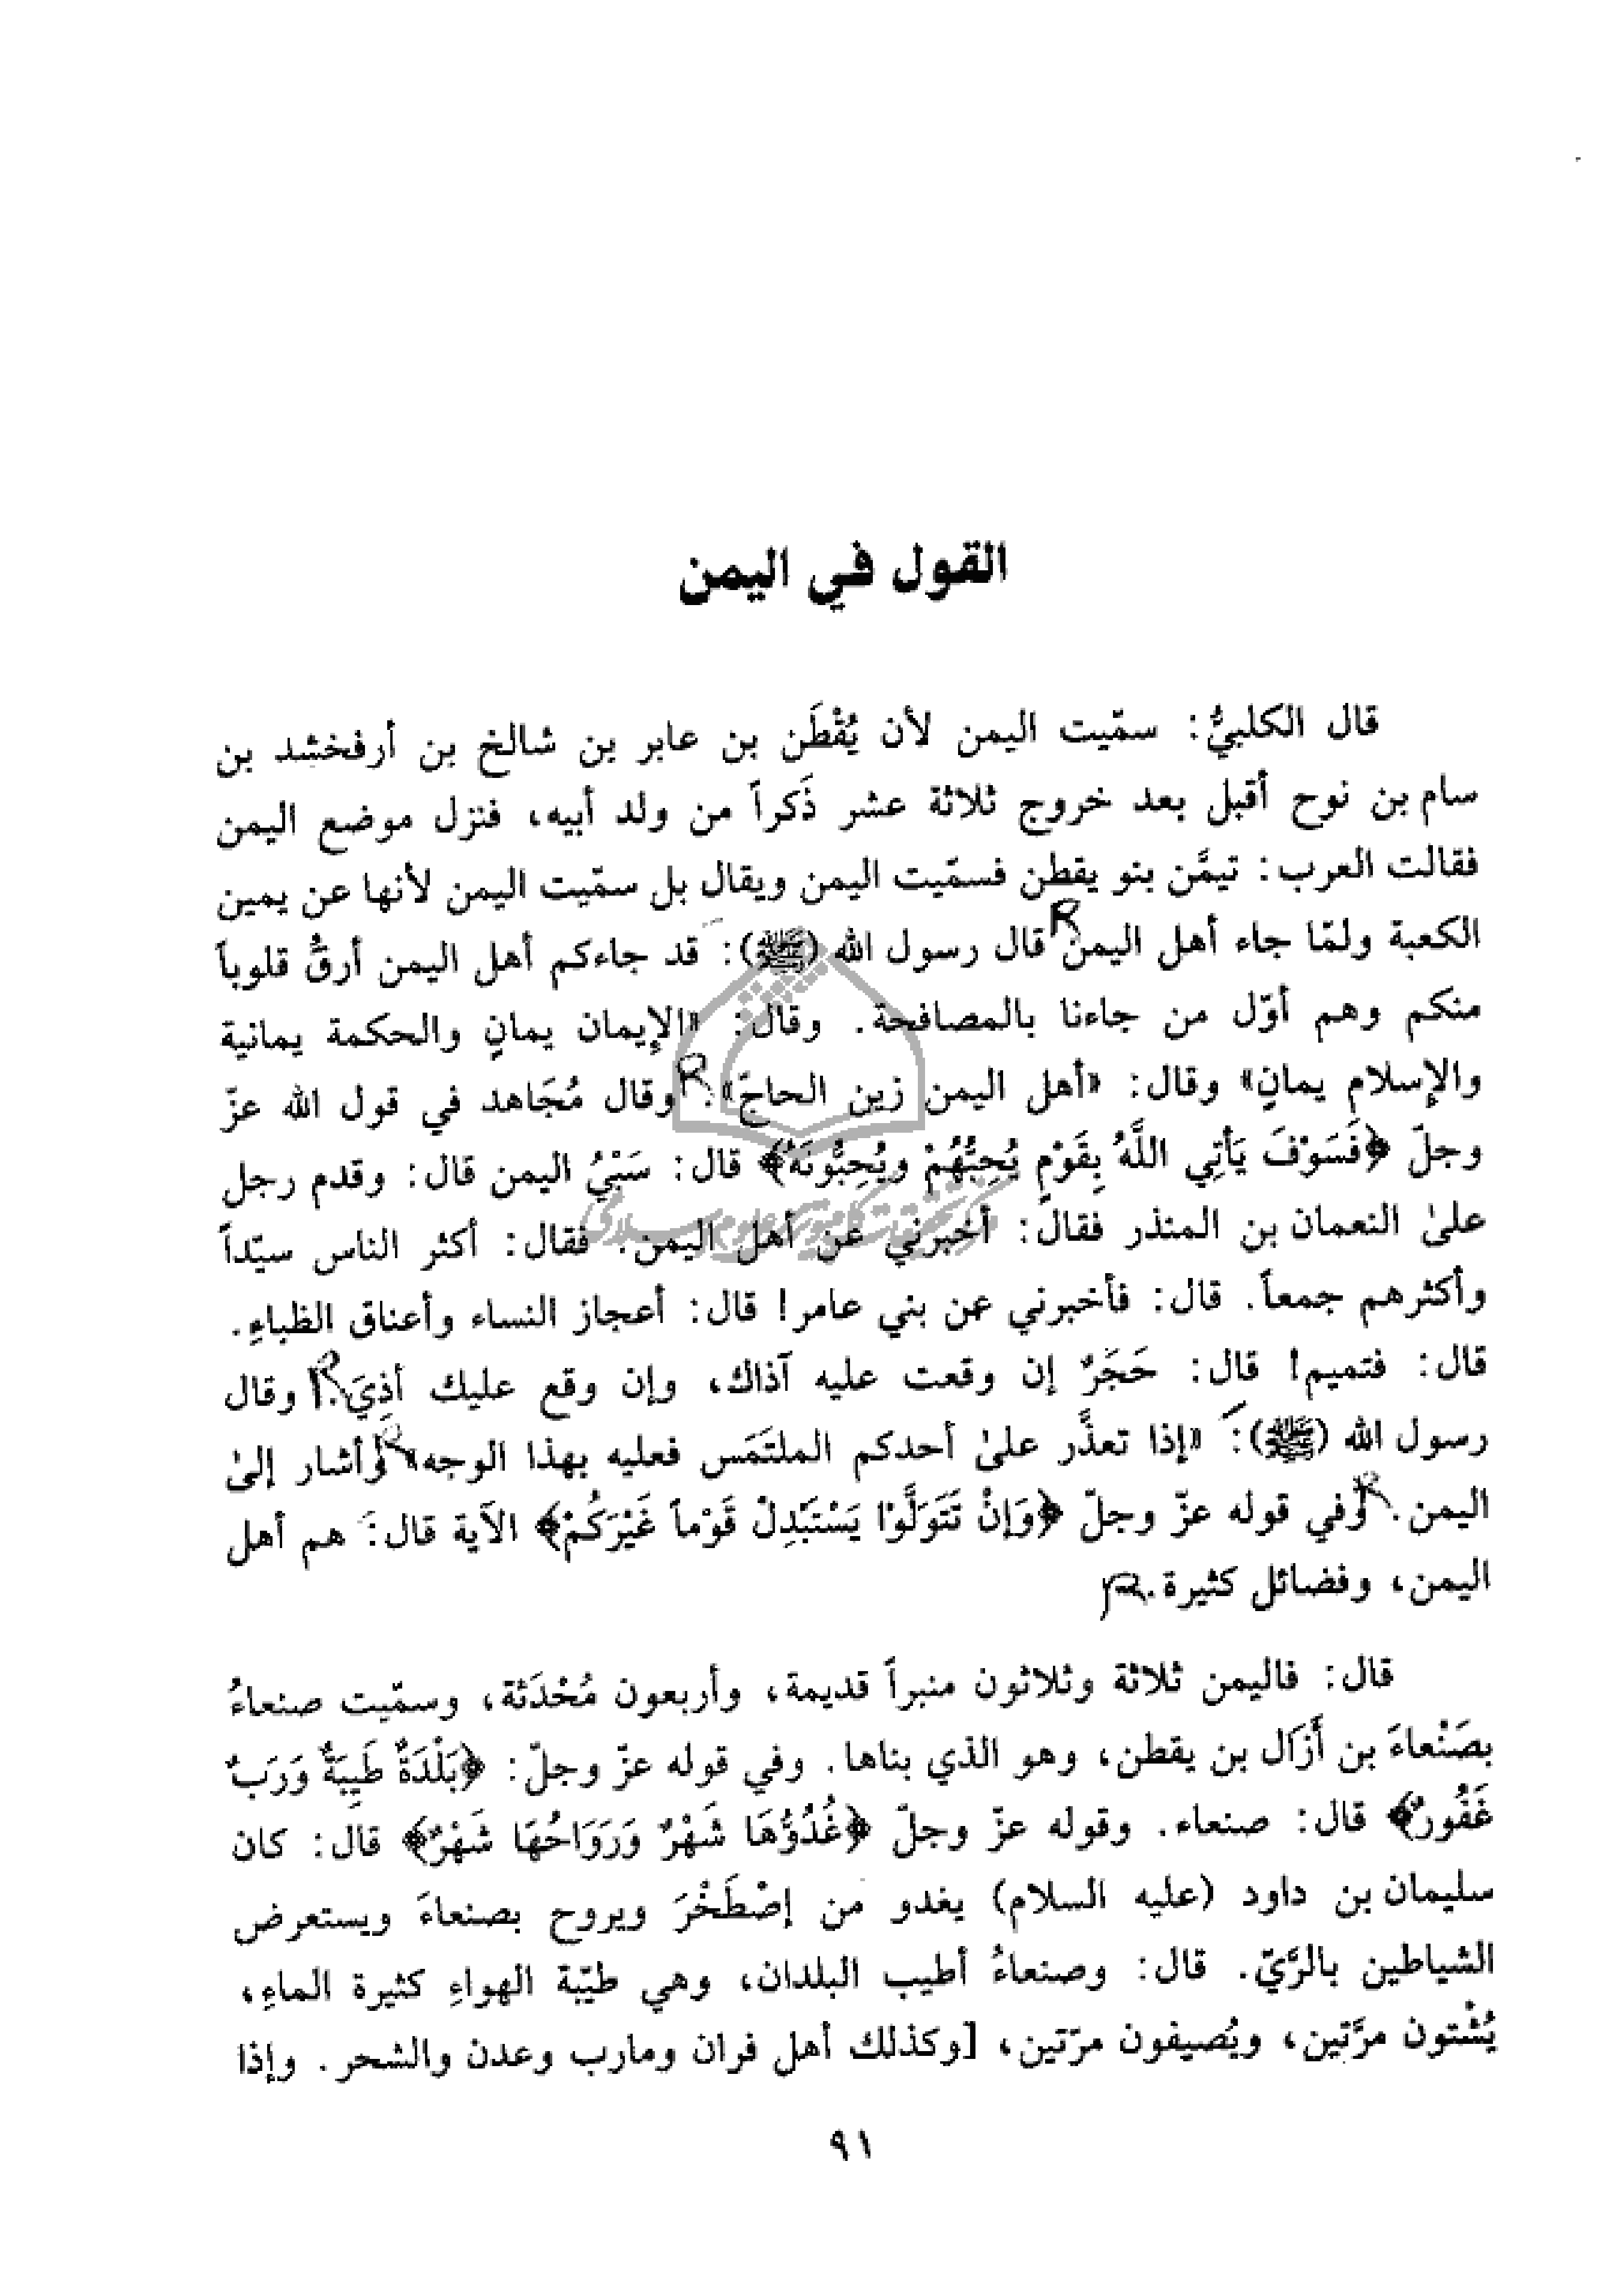 القول في اليمن
قال الكلبيُّ: سمّيت اليمن لأن يُقْطَن بن عابر بن شالخ بن أرفخشد بن
سام بن نوح أقبل بعد خروج ثلاثة عشر ذَكراً من ولد أبيه، فنزل موضع اليمن
فقالت العرب: تيمَّن بنو يقطن فسمّيت اليمن ويقال بل سمّيت اليمن لأنها عن يمين
الكعبة ولمّا جاء أهل اليمن قال رسول الله (ﷺ): قد جاءكم أهل اليمن أرقُّ قلوباً
منكم وهم أوّل من جاءنا بالمصافحة. وقال: «الإيمان يمانٍ والحكمة يمانية
والإسلام يمانٍ» وقال: «أهل اليمن زين الحاجّ». وقال مُجَاهد في قول الله عزّ
وجلّ ﴿فَسَوْفَ يَأتِي اللَّهُ بِقَوْمٍ يُحِبُّهُمْ ويُحِبُّونَهُ﴾ قال: سَبْيُ اليمن قال: وقدم رجل
علىٰ النعمان بن المنذر فقال: أخبرني عن أهل اليمن. فقال: أكثر الناس سيّداً
وأكثرهم جمعاً. قال: فأخبرني عن بني عامر! قال: أعجاز النساء وأعناق الظباءِ.
قال: فتميم! قال: حَجَرٌ إن وقعت عليه آذاك، وإن وقع عليك أذِيَ. وقال
رسول الله (ﷺ): «إذا تعذَّر علىٰ أحدكم الملتَمَس فعليه بهذا الوجه» وأشار إلىٰ
اليمن. وفي قوله عزّ وجلّ ﴿وَإنْ تَتَوَلَّوْا يَسْتَبْدِلْ قَوْماً غَيْرَكُمْ﴾ الآية قال: هم أهل
اليمن، وفضائل كثيرة.
قال: فاليمن ثلاثة وثلاثون منبراً قديمة، وأربعون مُحْدَثة، وسمّيت صنعاءُ
بصَنْعاءَ بن أَزَال بن يقطن، وهو الذي بناها. وفي قوله عزّ وجلّ: ﴿بَلْدَةٌ طَيِبَةٌ وَرَبٌ
غَفُورٌ﴾ قال: صنعاء. وقوله عزّ وجلّ ﴿غُدُوُّهَا شَهْرٌ وَرَوَاحُهَا شَهْرٌ﴾ قال: كان
سليمان بن داود (عليه السلام) يغدو من إصْطَخْرَ ويروح بصنعاءَ ويستعرض
الشياطين بالرَّيّ. قال: وصنعاءُ أطيب البلدان، وهي طيّبة الهواءِ كثيرة الماءِ،
يُشْتون مرَّتين، ويُصيفون مرّتين، [وكذلك أهل فران ومارب وعدن والشحر. وإذا
٩١